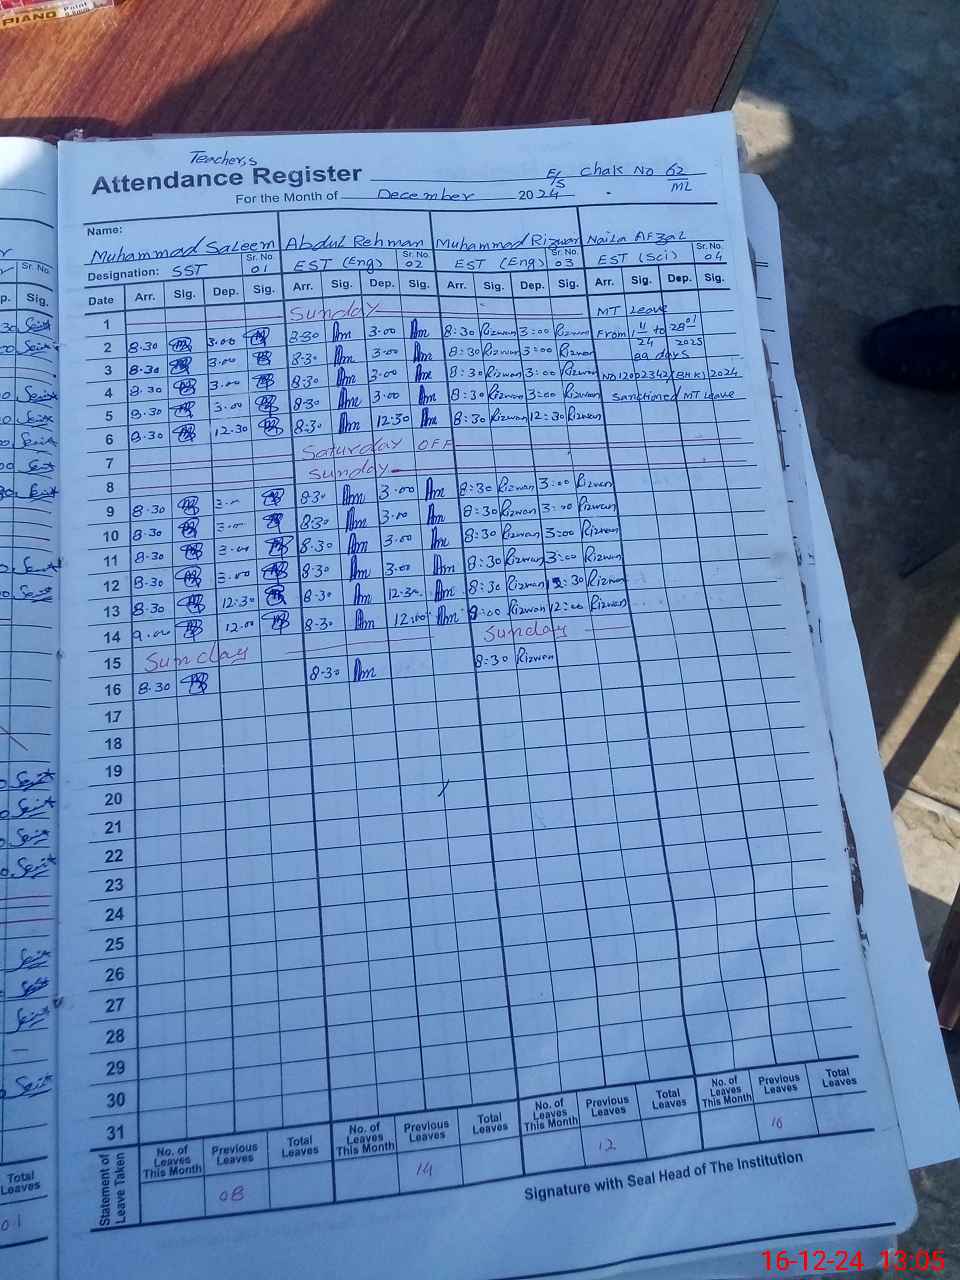 PIANO Point
Teacher,s
Attendance Register E/S Chak No 62/ML
For the Month of December 2024
Name:
Muhammad Saleem Abdul Rehman Muhammad Rizwan Naila Afzal
Designation: SST Sr. No. 01 EST (Eng) Sr. No. 02 EST (Eng) Sr. No. 03 EST (Sci) Sr. No. 04
Date Arr. Sig. Dep. Sig. Arr. Sig. Dep. Sig. Arr. Sig. Dep. Sig. Arr. Sig. Dep. Sig.
1 Sunday MT Leave
2 8.30 3.00 8.30 3.00 8:30 Rizwan 3:00 Rizwan From 11/24 to 28 01/2025
3 8.30 3.00 8.30 3.00 8:30 Rizwan 3:00 Rizwan 89 days
4 8.30 3.00 8.30 3.00 8:30 Rizwan 3:00 Rizwan
5 8.30 3.00 8.30 3.00 8:30 Rizwan 3:00 Rizwan Sanctioned MT Leave
6 8.30 12.30 8.30 12.30 8:30 Rizwan 12:30 Rizwan
7 Saturday OFF
8 Sunday
9 8.30 3.00 8.30 3.00 8:30 Rizwan 3:00 Rizwan
10 8.30 3.00 8.30 3.00 8:30 Rizwan 3:00 Rizwan
11 8.30 3.00 8.30 3.00 8:30 Rizwan 3:00 Rizwan
12 8.30 3.00 8.30 3.00 8:30 Rizwan 3:00 Rizwan
13 8.30 12.30 8.30 12.30 8:30 Rizwan 12:30 Rizwan
14 9.00 12.00 8.30 12.00 8:00 Rizwan 12:00 Rizwan
15 Sunday Sunday
16 8.30 8.30 8:30 Rizwan
17
18
19
20
21
22
23
24
25
26
27
28
29
30
31
Statement of Leave Taken
No. of Leaves This Month Previous Leaves Total Leaves No. of Leaves This Month Previous Leaves Total Leaves No. of Leaves This Month Previous Leaves Total Leaves No. of Leaves This Month Previous Leaves Total Leaves
08 14 12 10
Signature with Seal Head of The Institution
Sr. No.
Sig.
Total Leaves
01
16-12-24 13:05